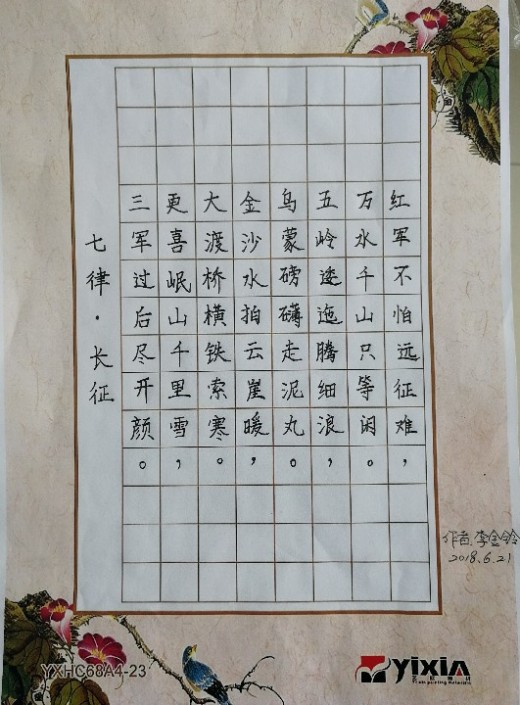 红军不怕远征难,
万水千山只等闲。
五岭逶迤腾细浪,
鸟蒙磅礴走泥丸。
金沙水拍云崖暖,
大渡桥横铁索寒。
更喜岷山千里雪,
三军过后尽开颜。
七律·长征
作者:李金铃
2018.6.21
YXHC68A4-23
yixin